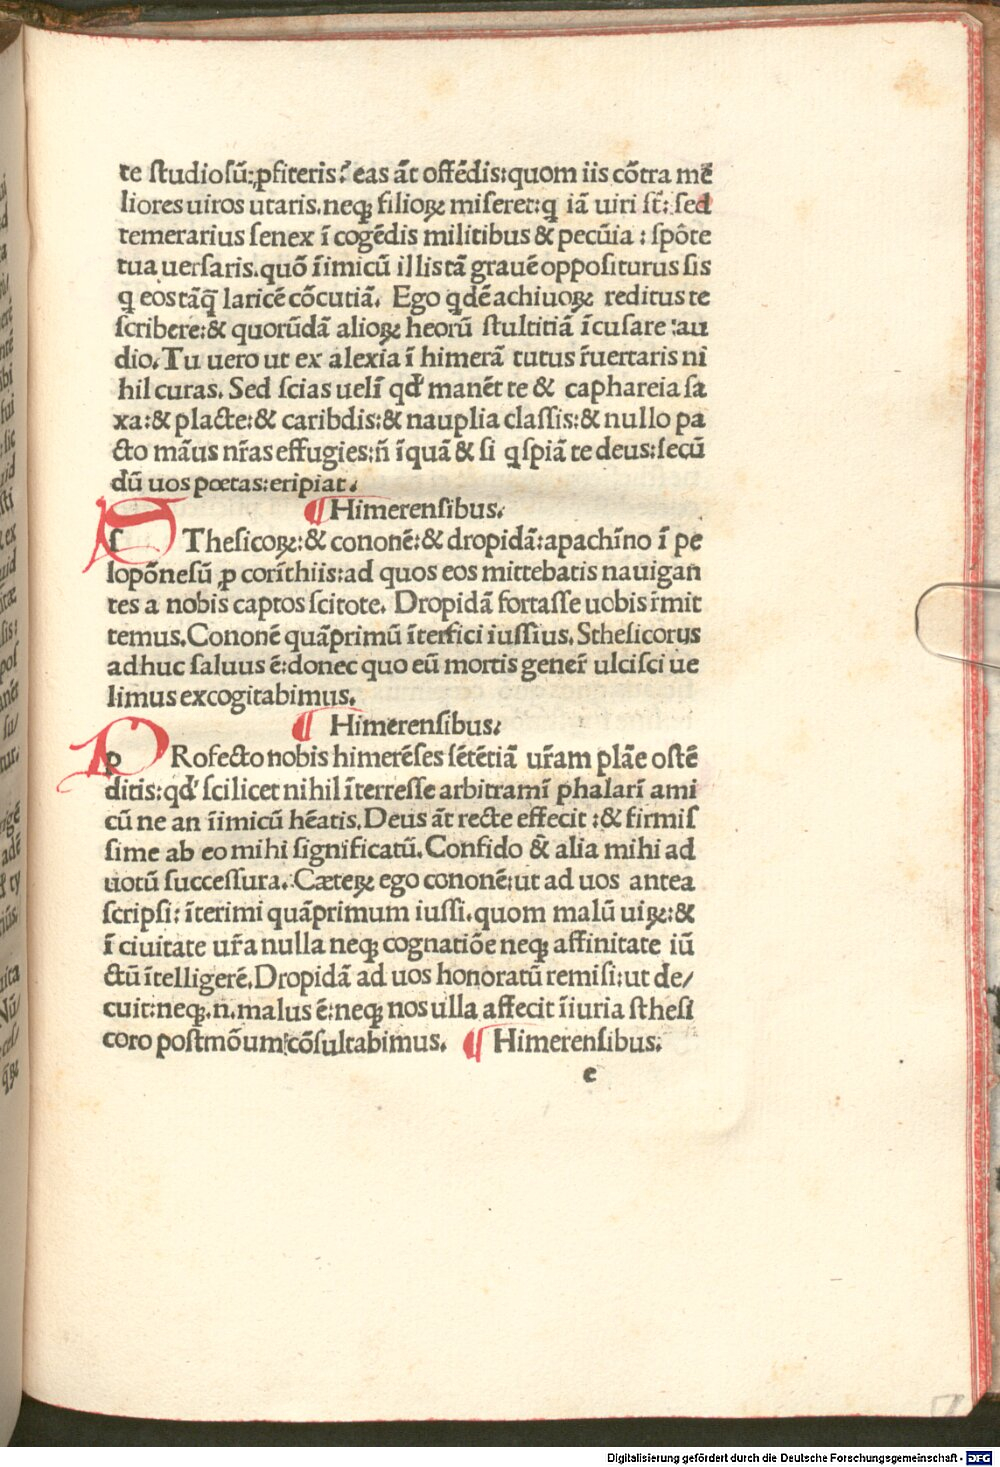 te ſtudioſū:ꝓfiteris? eas āt offēdis:quom iis cōtra mē
liores uiros utaris.neqꝫ filioꝝ miſeret:q iā uiri ſt̄: ſed
temerarius ſenex ī cogēdis militibus & pecūia : ſpōte
tua uerſaris.quō īimicū illi stā grauē oppoſiturus ſis
q eos tāq̄ laricē cōcutiā. Ego qdē achiuoꝝ reditus te
ſcribere:& quorūdā alioꝝ heorū ſtultitiā īcuſare :au
dio. Tu uero ut ex alexia ī himerā tutus r̄uertaris ni
hil curas. Sed ſcias uelī qđ manēt te & caphareia ſa
xa:& placte:& caribdis:& nauplia claſſis:& nullo pa
cto māus nr̄as effugies:n̄ īquā & ſi qſpiā te deus:ſecū
dū uos poetas:eripiat.
¶ Himerenſibus.
S Theſicoꝝ:& cononē:& dropidā:apachīno ī pe
lopōneſū ꝓ corīthiis:ad quos eos mittebatis nauigan
tes a nobis captos ſcitote. Dropidā fortaſſe uobis r̄mit
temus. Cononē quāprimū īterfici iuſſius. Stheſicorus
adhuc ſaluus ē:donec quo eū mortis gener̄ ulciſci ue
limus excogitabimus.
¶ Himerenſibus.
P Rofecto nobis himerēſes ſētētiā ur̄am plāe oſtē
ditis:qđ ſcilicet nihil īterreſſe arbitramī phalarī ami
cū ne an īimicū hēatis. Deus āt recte effecit :& firmiſ
ſime ab eo mihi ſignificatū. Confido & alia mihi ad
uotū ſucceſſura. Cæteꝝ ego cononē:ut ad uos antea
ſcripſi: īterimi quāprimum iuſſi.quom malū uiꝝ:&
ī ciuitate ur̄a nulla neqꝫ cognatiōe neqꝫ affinitate iū
ctū ītelligerē. Dropidā ad uos honoratū remiſi:ut de/
cuit:neqꝫ.n.malus ē:neqꝫ nos ulla affecit īiuria ſtheſi
coro poſtmōum:cōſultabimus. ¶ Himerenſibus.
e
Digitalisierung gefördert durch die Deutsche Forschungsgemeinschaft - DFG